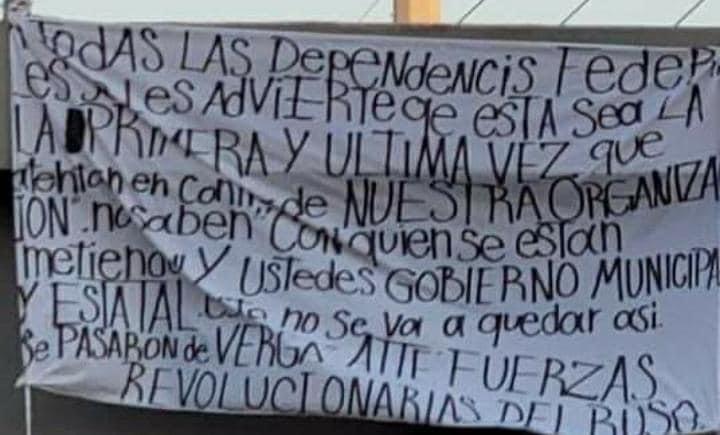 A TODAS LAS DepENdeNCiS FedeRA
es Se les AdViERTe qe estA Sea LA
LA PRIMERA Y ULTIMA VEZ que
atentan en Contra de NUESTRA ORGANIZA
ION". no saben" Con quien se estan
metieno Y USTEDES GOBIERNO MUNICIPA
Y ESTATAL. esto no se va a quedar asi.
Se PASARON de VERGA ATTE FUERZAS
REVOLUCIONARIAS DEL RUSO.